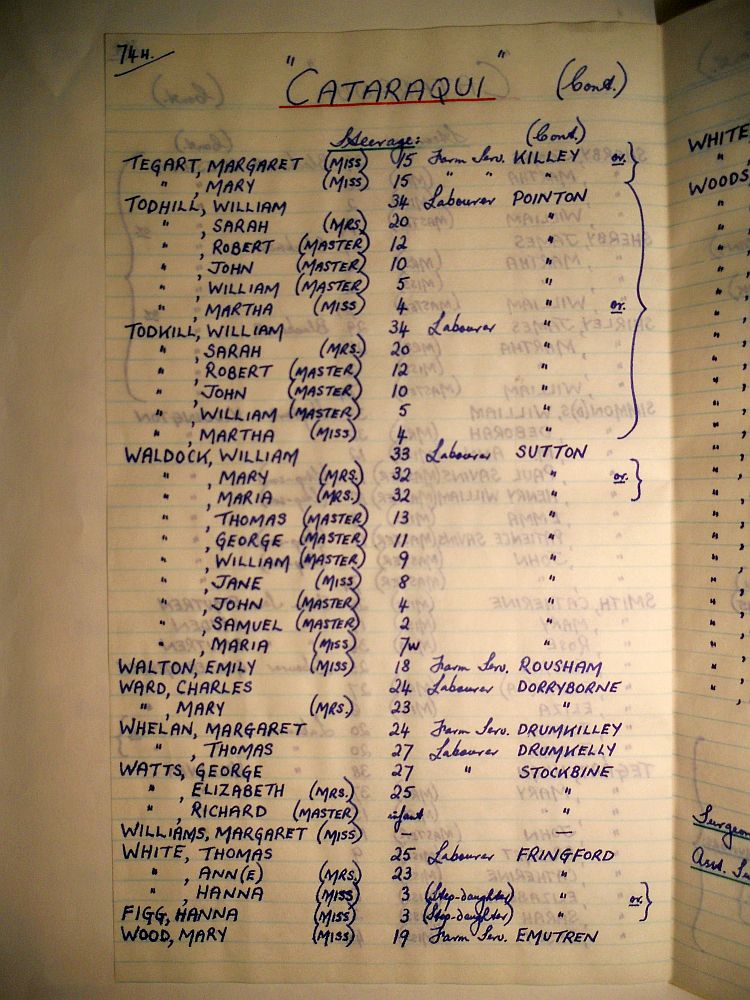 74H.
"CATARAQUI" (Cont.)
Steerage: (Cont.)
TEGART, MARGARET (MISS) 15 Farm Serv. KILLEY or.
" , MARY (MISS) 15 " " "
TODHILL, WILLIAM 34 Labourer POINTON
" , SARAH (MRS.) 20 "
" , ROBERT (MASTER) 12 "
" , JOHN (MASTER) 10 "
" , WILLIAM (MASTER) 5 "
" , MARTHA (MISS) 4 " or.
TODKILL, WILLIAM 34 Labourer "
" , SARAH (MRS.) 20 "
" , ROBERT (MASTER) 12 "
" , JOHN (MASTER) 10 "
" , WILLIAM (MASTER) 5 "
" , MARTHA (MISS) 4 "
WALDOCK, WILLIAM 33 Labourer SUTTON
" , MARY (MRS.) 32 " or.
" , MARIA (MRS.) 32 "
" , THOMAS (MASTER) 13 "
" , GEORGE (MASTER) 11 "
" , WILLIAM (MASTER) 9 "
" , JANE (MISS) 8 "
" , JOHN (MASTER) 4 "
" , SAMUEL (MASTER) 2 "
" , MARIA (MISS) 7w "
WALTON, EMILY (MISS) 18 Farm Serv. ROUSHAM
WARD, CHARLES 24 Labourer DORRYBORNE
" , MARY (MRS.) 23 "
WHELAN, MARGARET 24 Farm Serv. DRUMKILLEY
" , THOMAS 27 Labourer DRUMKELLY
WATTS, GEORGE 27 " STOCKBINE
" , ELIZABETH (MRS.) 25 "
" , RICHARD (MASTER) infant "
WILLIAMS, MARGARET (MISS) — —
WHITE, THOMAS 25 Labourer FRINGFORD
" , ANN(E) (MRS.) 23 "
" , HANNA (MISS) 3 (Step-daughter) " or.
FIGG, HANNA (MISS) 3 (Step-daughter) "
WOOD, MARY (MISS) 19 Farm Serv. EMUTREN
WHITE,
"
WOODS,
Surgeon